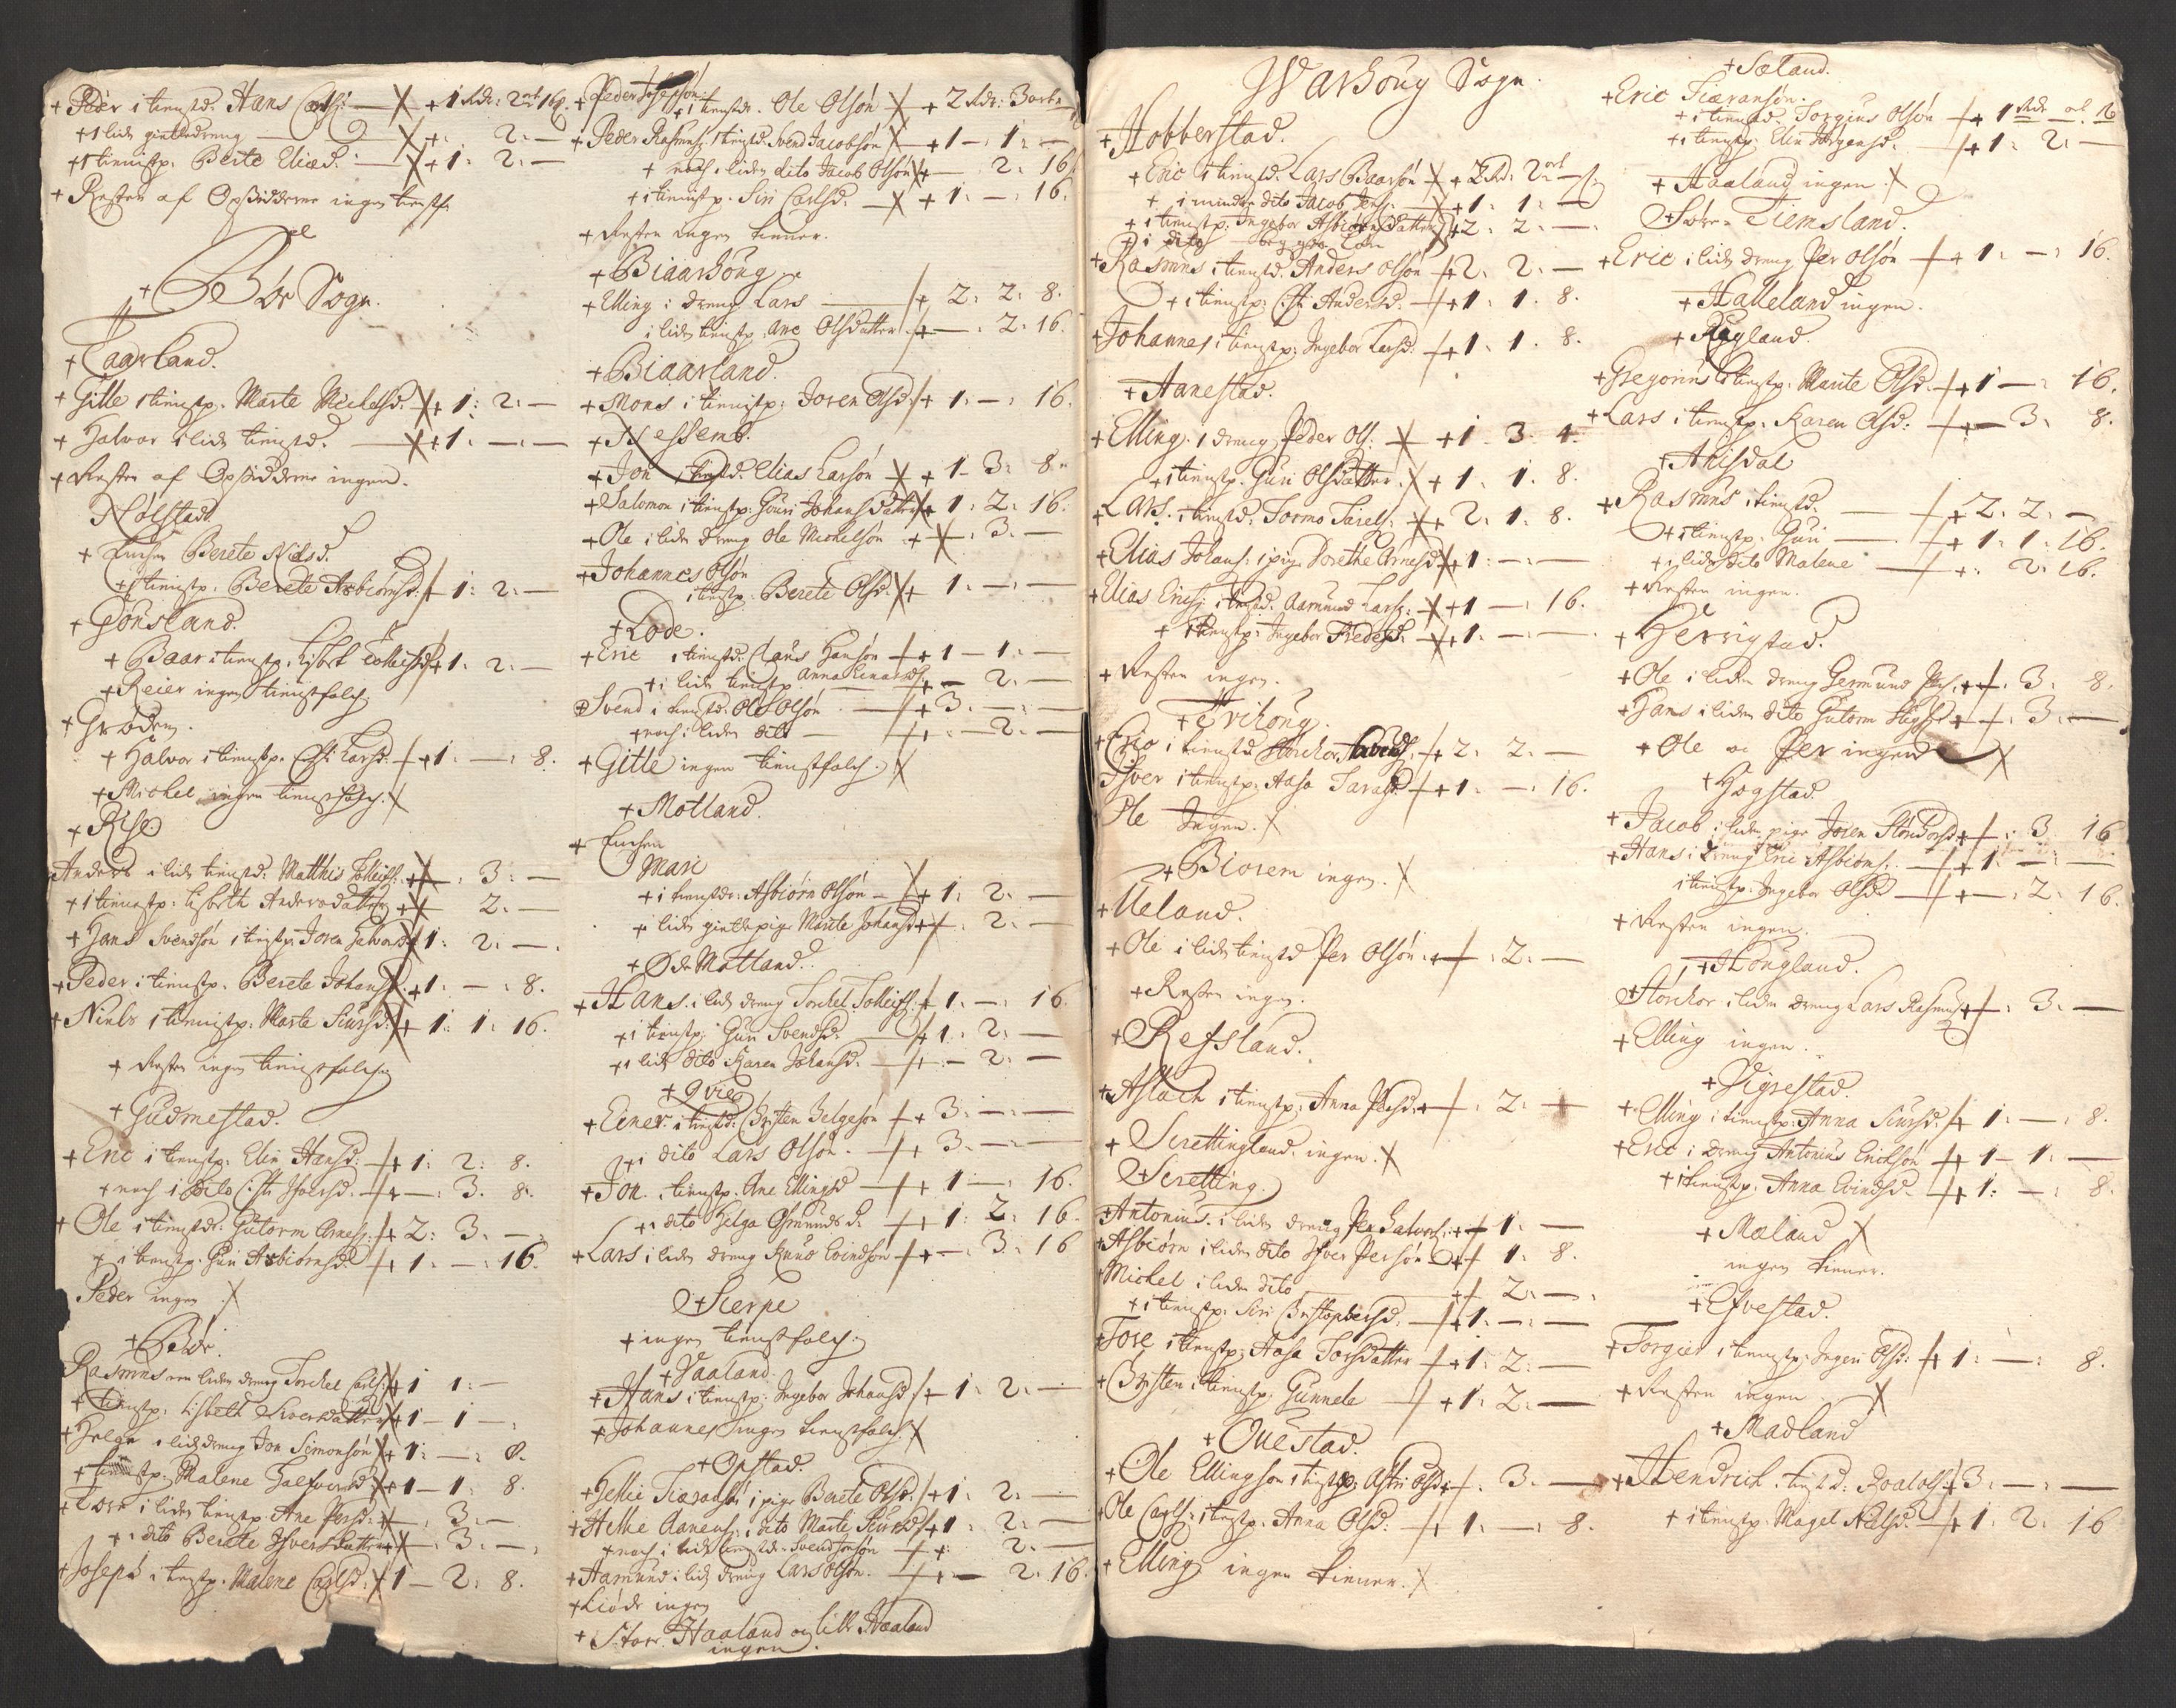 + Peder i tienistd: Hans Carls: — + 1 Rdr: 2 ort 16 s.
+ 1 liden gietledreng — + : 2: —
+ 1 tienistp: Berte Eliæd: — + 1: 2: —
+ Resten af Opsidderne ingen tienstf
+ Bøe Sogn.
+ Taarland.
+ Gitle 1 tienistp: Marte Michelsd: + 1: 2: —
+ Halvor 1 liden tienistd: — + 1: — : —
+ Resten af Opsidderne ingen.
Nølstad
+ Enchen Berete Nielsd.
+ 1 tienistp: Berete Asbiørnsd: + 1: 2: —
+ Gönsland.
+ Baar 1 tienistp: Lisbeth Tolleifsd + 1: 2: —
+ Reier ingen tienistfolch
+ Grødem.
+ Halvor 1 tienistp: Larsd: + 1: — : 8.
+ Michel ingen tienistfolch.
+ Rise
Anders i liden tienistd: Matthis Tolleifs: + : 3: —
+ 1 tienistp: Lisbeth Andersdatter + 2: —
+ Hans Svendsøn 1 tienistp: Joren Halvorsd + 1: 2: —
+ Peder i tienistp: Berete Johansd + 1: — : 8.
+ Niels 1 tienistp: Marte Siursd: + 1: 1: 16.
+ Resten ingen tienistfolch
+ Gudmestad.
+ Eric i tienistp: Elin Hansd: + 1: 2: 8.
+ noch 1 dito Ifversd: + — : 3: 8.
+ Ole i tienistdr: Gutorm Arnes: + 2: 3: —
+ i tienistp: Guri Asbiørnsd + 1: — : 16.
Peder ingen
+ Bøe.
Rasmus en liden dreng Torchel Carls: + 1 1: —
+ tienistp: Lisbeth Siversdatter + 1 — 1 —
+ Helge 1 lidedreng Jon Simonsøn + 1: — : 8.
+ tienistp: Malene Halfvorsd + 1 — 1: 8.
+ Tore i liden tienistp: Ane Persd: + : 3: —
+ 1 dito Berete Ifversdatter + : 3: —
+ Joseph i tienistp: Malene Carlsd: + 1 — 2: 8.
+ Peder Josepsøn:
+ i tienistdr: Ole Olsøn + 2 Rdr: 3 ort
+ Peder Rasmus: 1 tienistd: Svend Jacobsøn + 1 — 1: —
+ noch 1 liden dito Jacob Olsøn + — 2: 16
+ i tienistp: Siri Carlsd: + 1: — : 16.
+ Resten ingen tiener.
+ Biaarhoug
+ Elling i dreng Lars — + 2: 2: 8.
i liden tienistp: Ane Olsdatter + — : 2: 16.
+ Biaarland.
+ Mons i tienistp: Joren Olsd + 1: — : 16.
+ Nessemb.
+ Jon 1 tienstd: Elias Larsøn + 1 — 3: 8
+ Salomon i tienistp: Gouri Johansdatter + 1: 2: 16.
+ Ole i liden dreng Ole Michelsøn + : 3: —
+ Johannes Olsøn
i tienstp: Berete Olsd: + 1: — : —
+ Lode.
+ Eric 1 tienistd: Claus Hansøn + 1 — 1: —
+ i liden tienistp: Anna Einarsd + — 2: —
+ Svend i tienistd: Ole Olsøn — + 3: — : —
+ noch i liden dito — + : — 2: —
+ Gitle ingen tienistfolch.
+ Motland.
+ Enchen
Mari
+ i tienistdr: Asbiørn Olsøn — + 1: 2: —
+ i liden gietlepige Marite Johansd + : 2: —
+ Øde Motland.
+ Hans i liden dreng Torchel Tolleifs: + 1: — : 16.
+ i tienistp: Guri Svendsd: + 1: 2: —
+ 1 liden dito Karen Johansd: + — 2: —
+ Qvie
+ Einer i tienistd: Christen Helgesøn + 3: — : —
+ i dito Lars Olsøn — + 3: — : —
+ Jon i tienistp: Ane Ellingsd + 1 — : 16.
+ i dito Helga Osmundsd: + 1: 2: 16.
+ Lars i liden dreng Knud Evindsøn + — : 3: 16
+ Sierpe
+ ingen tienistfolch
+ Vaaland
+ Hans i tienistp: Ingebor Johansd + 1: 2: —
+ Johannes ingen tienistfolch.
+ Opstad.
+ Helie Tiæransøn 1 pige Berete Olsd: + 1: 2: —
+ Helie Aanens: i dito Marte Siursd: + 1: 2: —
+ noch i liden tienistdr Svend Jonsøn + : 2: —
+ Aamund i lid dreng Lars Olsøn — + : — 2: 16.
+ Liøde ingen
+ Store Haaland og lille Haaland
ingen.
Warhoug Sogn.
+ Hobberstad.
+ Eric i tienistd: Lars Baarsøn + 2 Rd: 2 ort —
+ i mindre dito Jacob Jens: + 1: 1: —
+ i tienistp: Ingebor Asbiørnsdatter + 2: 2: —
+ i dito
+ Rasmus i tienistd: Anders Olsøn + 2: 2: —
+ i tienistp: Andersd: + 1: 1: 8.
+ Johannes i tienistp: Ingebor Larsd: + 1: 1: 8.
+ Aanestad.
+ Elling 1 dreng Peder Ols: + 1: 3: 4.
+ i tienistp: Guri Olsdatter + 1: 1: 8.
+ Lars i tienistd: Tormo Tarels: + 2: 1: 8.
+ Elias Johans: 1 pige Dorethe Arnesd + 1: — : —
+ Elias Erics: i tienistd: Aamund Lars: + 1 — : 16.
+ 1 tienistp: Ingebor Tredesd: + 1: — : —
+ Resten ingen.
+ Tvihoug.
+ Eric i tienistd Storchor + 2: 2: —
Ifver i tienistp: Aasa Tarald: + 1: — : 16.
Ole Ingen.
+ Biorem ingen.
+ Ueland.
+ Ole i liden tienistd Per Olsøn + : 2: —
+ Resten ingen.
+ Refsland.
+ Aslach i tienistp: Anna Persd: + : 2: —
+ Serettingland. ingen.
+ Seretting.
+ Antonius i liden dreng Per Halvors: + 1: —
+ Asbiørn i liden dito Ifver Persøn + 1: 8.
Michel i liden dito — + 2: —
+ i tienistp: Siri Christophersd: + 1: — : —
+ Tore i tienstp: Aasa Torsdatter + 1: 2: —
+ Christen i tienistp: Gunnele + 1: 2: —
+ Ouestad.
+ Ole Ellingsøn i tienistp: Astri Olsd + : 3: —
+ Ole Carls: i tienstp: Anna Olsd: + 1: — : 8.
+ Elling ingen tiener.
+ Sæland.
+ Eric Tiæransøn.
+ i tienistd: Torgius Olsøn + 1 Rdr ort 16
+ i tienistp: Elin Jørgensd: + 1: 2: —
+ Haaland ingen
+ Søre Tiemsland.
+ Eric i liden dreng Per Olsøn + 1: — : 16.
+ Halleland ingen.
+ Rygland.
+ Gregorius 1 tienistp: Marite Olsd: + 1 — : 16.
+ Lars i tienistp: Karen Olsd: + — 3: 8.
+ Ahisdal
+ Rasmus i tienistd — + 2: 2: —
+ i tienistp: Guri — + 1: 1: 16.
+ i liden dito Malene — + : 2: 16.
+ Resten ingen.
+ Herrigstad.
+ Ole i liden dreng Germund Pers: + : 3: 8.
+ Hans i liden dito Gutorm + : 3: —
+ Ole oc Per ingen
+ Hogstad.
+ Jacob i liden pige Joren Storchorsd + : 3: 16
+ Hans i dreng Eric Asbiørns: + 1: — : —
i tienistp: Ingebor Olsd + — : 2: 16.
+ Resten ingen.
+ Hougland.
+ Storchor i liden dreng Lars Rasmus: + : 3: —
+ Elling ingen.
+ Vigrestad.
+ Elling i tienistp: Anna Siursd: + 1: — : 8.
+ Eric i dreng Antonius Erichsøn + 1 — 1: —
+ i tienistp: Anna Evindsd: + 1: — : 8.
+ Mæland
ingen tiener.
+ Efvestad.
+ Torgier i tienistp: Ingeri Olsd: + 1: — : 8.
+ Resten ingen
+ Madland
+ Hendrich i tienistd: Roalds: + 3: — : —
+ i tienistp: Magel Nielsd: + 1: 2: 16